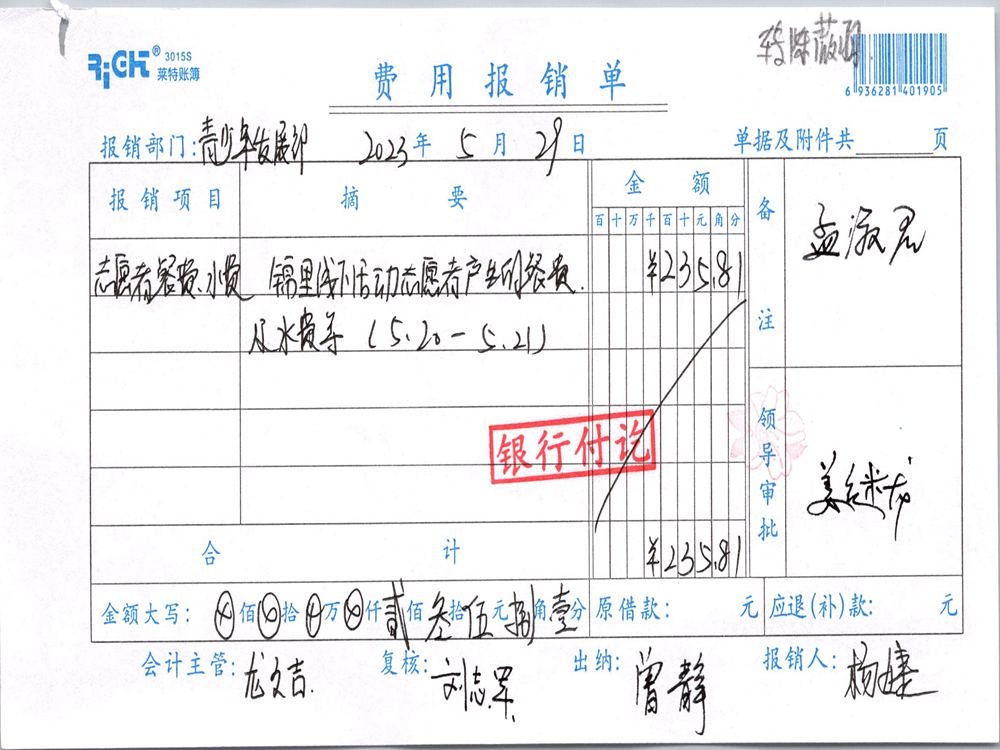 RiGHT® 3015S
莱特账簿
费用报销单
转陈薇
6 936281 401905
报销部门: 青少年发展部 2023年 5月 29日 单据及附件共 页
报销项目 摘要 金额 备注
百十万千百十元角分
孟淑君
志愿者餐费、水费 锦里线下活动志愿者产生的餐费 ¥235.81
及水费等 (5.20-5.21)
银行付讫
领导审批 姜继龙
合计 ¥235.81
金额大写: ⊗佰⊗拾⊗万⊗仟贰佰叁拾伍元捌角壹分 原借款: 元 应退(补)款: 元
会计主管: 龙文吉. 复核: 刘志军 出纳: 曾静 报销人: 杨婕